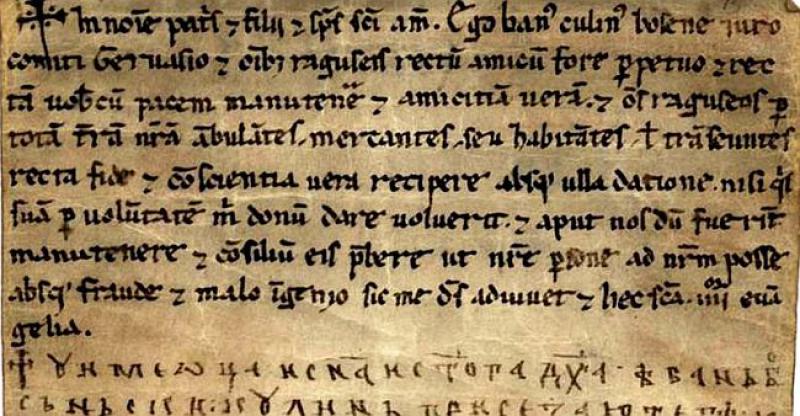 ✝ In noīe pat̄s ⁊ filii ⁊ sp̄s sc̄i am̄. Ego banꝰ culinꝰ bosene iuro
comiti Geruasio ⁊ oīb; raguseis rectū amicū fore ꝑpetuo ⁊ rec
tā uob̄cū pacem manutene ⁊ amicitiā uerā. ⁊ om̄s raguseos ꝑ
totā t̄rā nr̄ā ābulātes. mercantes. seu habitātes. ł trāseuntes
recta fide ⁊ cōscientia uera recipere absq; ulla datione. nisi q̄s
suā ꝑ uolūtatē m̄ donū dare uoluerit. ⁊ aput nos dū fuerīt
manutenere ⁊ cōsiliū eis p̄bere ut nr̄e ꝑsone ad nr̄m posse
absq; fraude ⁊ malo īgenio sic me d̄s adiuuet ⁊ hec sc̄a. iiii euā
gelia.
✝ У име ѡца и сн҃а и ст҃ога дх҃а ѣ бань б
сьньски кулинь присезаю теб